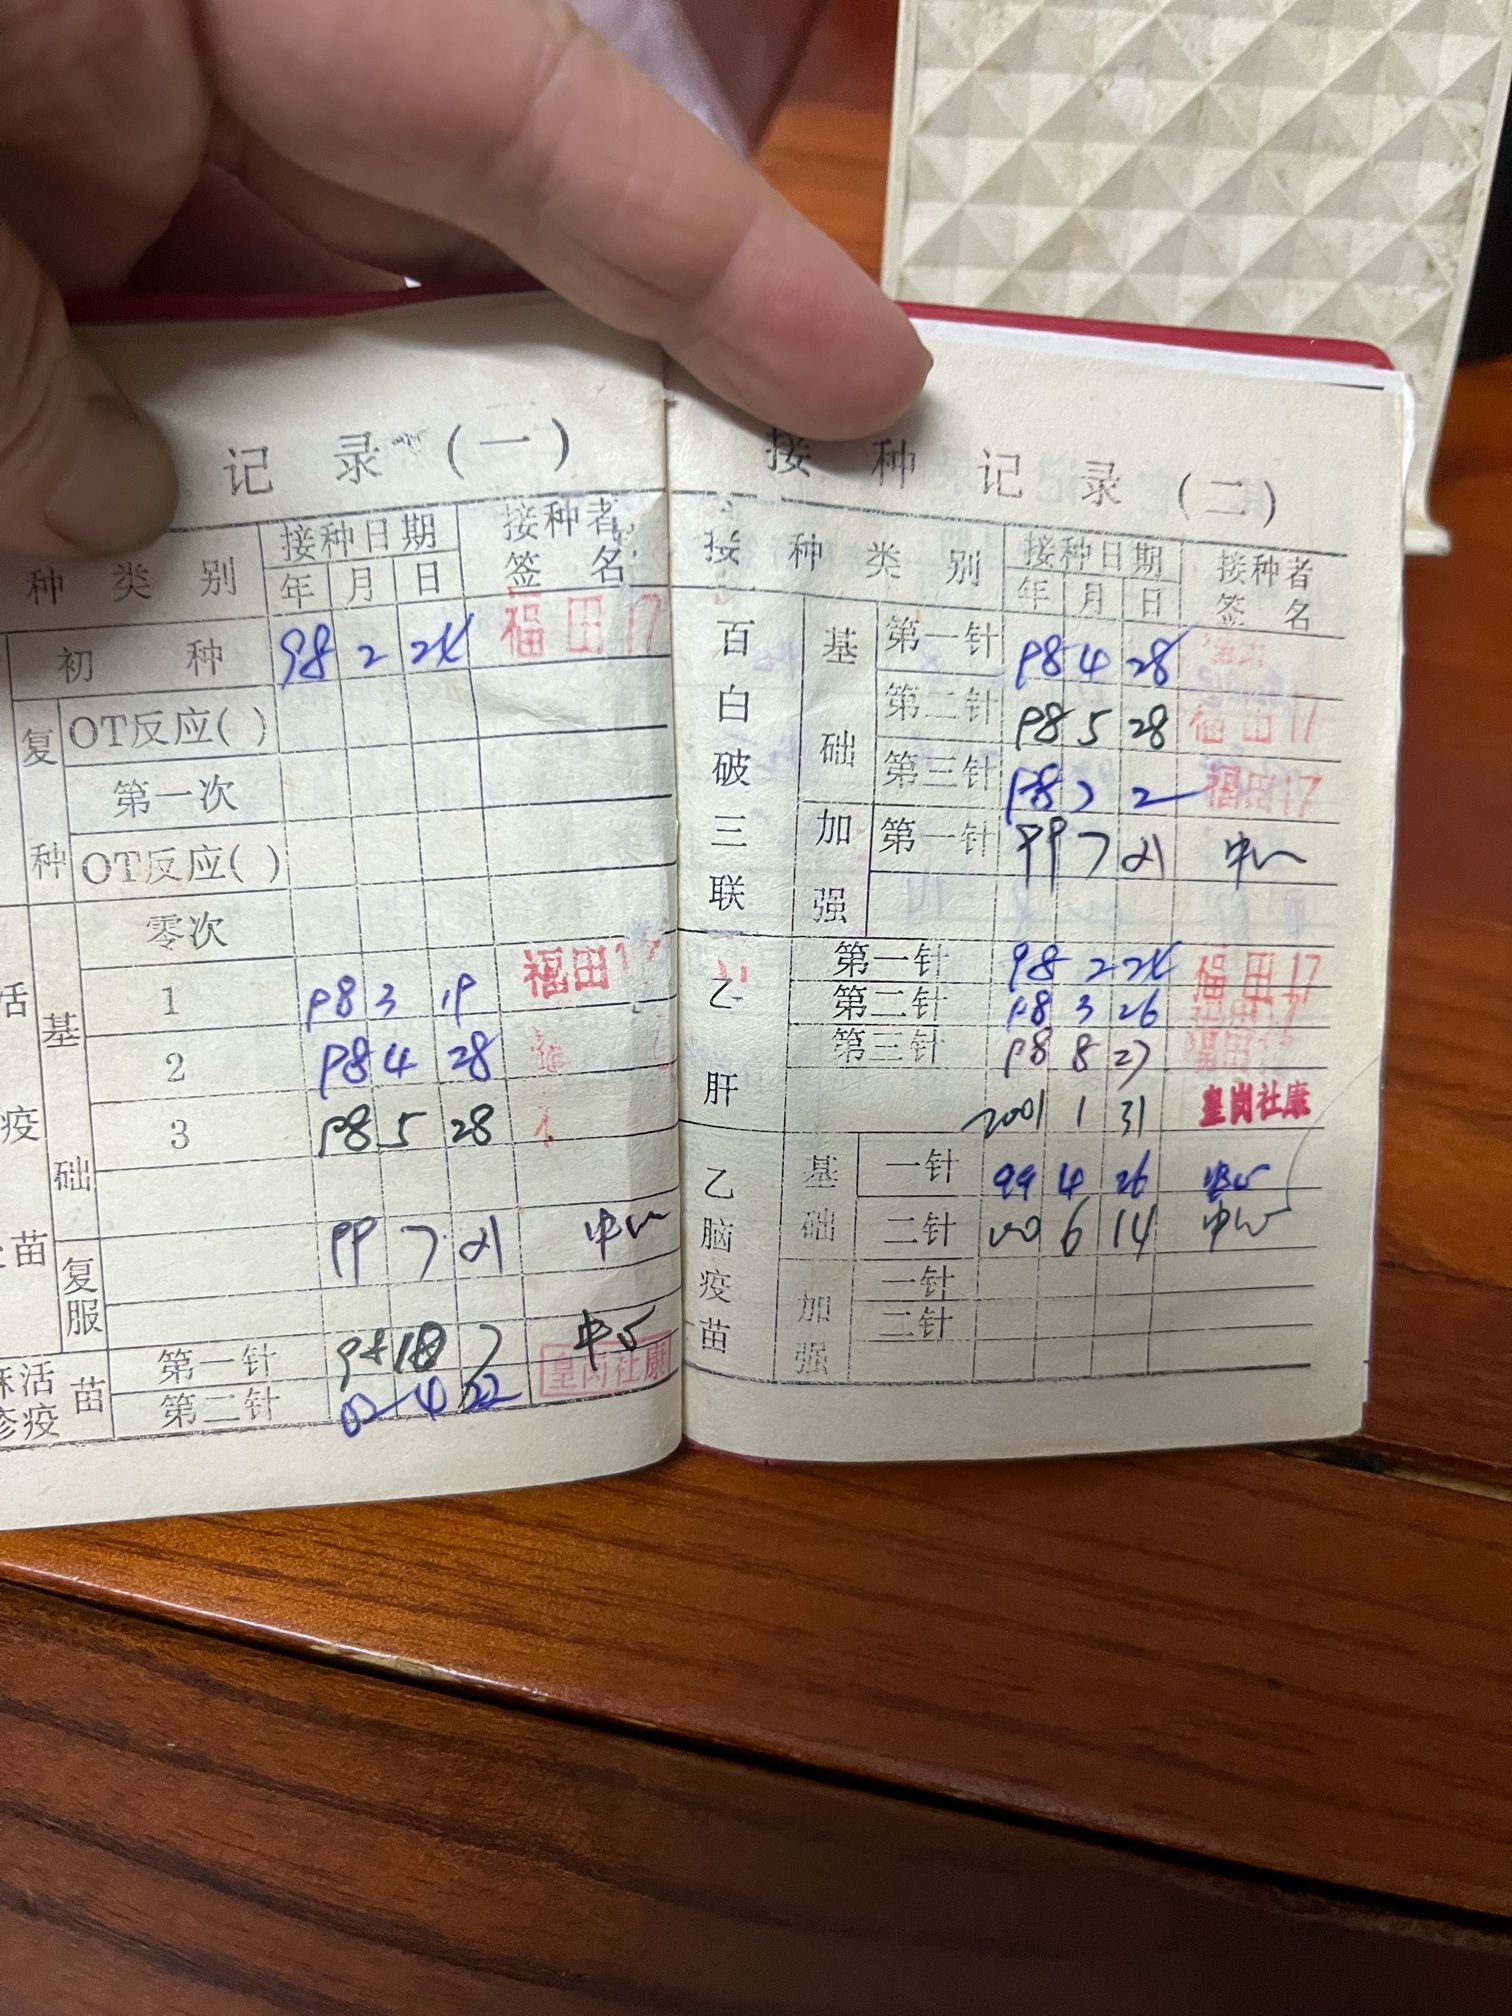 记 录 (一)
种 类 别 接种日期 接种者
年 月 日 签 名
初 种 98 2 24 福田17
复 OT反应( )
第一次
种 OT反应( )
零次
活 基 1 98 3 19 福田17
2 98 4 28
疫 3 98 5 28
础
苗 99 7 21 中心
复
服
第一针 10 7 中心
活 苗
疹疫 第二针 02 4 22 皇岗社康
接 种 记 录 (二)
接 种 类 别 接种日期 接种者
年 月 日 签 名
百 基 第一针 98 4 28
白 第二针 98 5 28 福田17
破 础 第三针 98 7 2 福田17
三 加 第一针 99 7 21 中心
联 强
乙 第一针 98 2 24 福田17
第二针 98 3 26 福田17
第三针 98 8 27 福田
肝 2001 1 31 皇岗社康
乙 基 一针 99 4 26 中心
脑 础 二针 00 6 14 中心
疫 加 一针
苗 强 二针